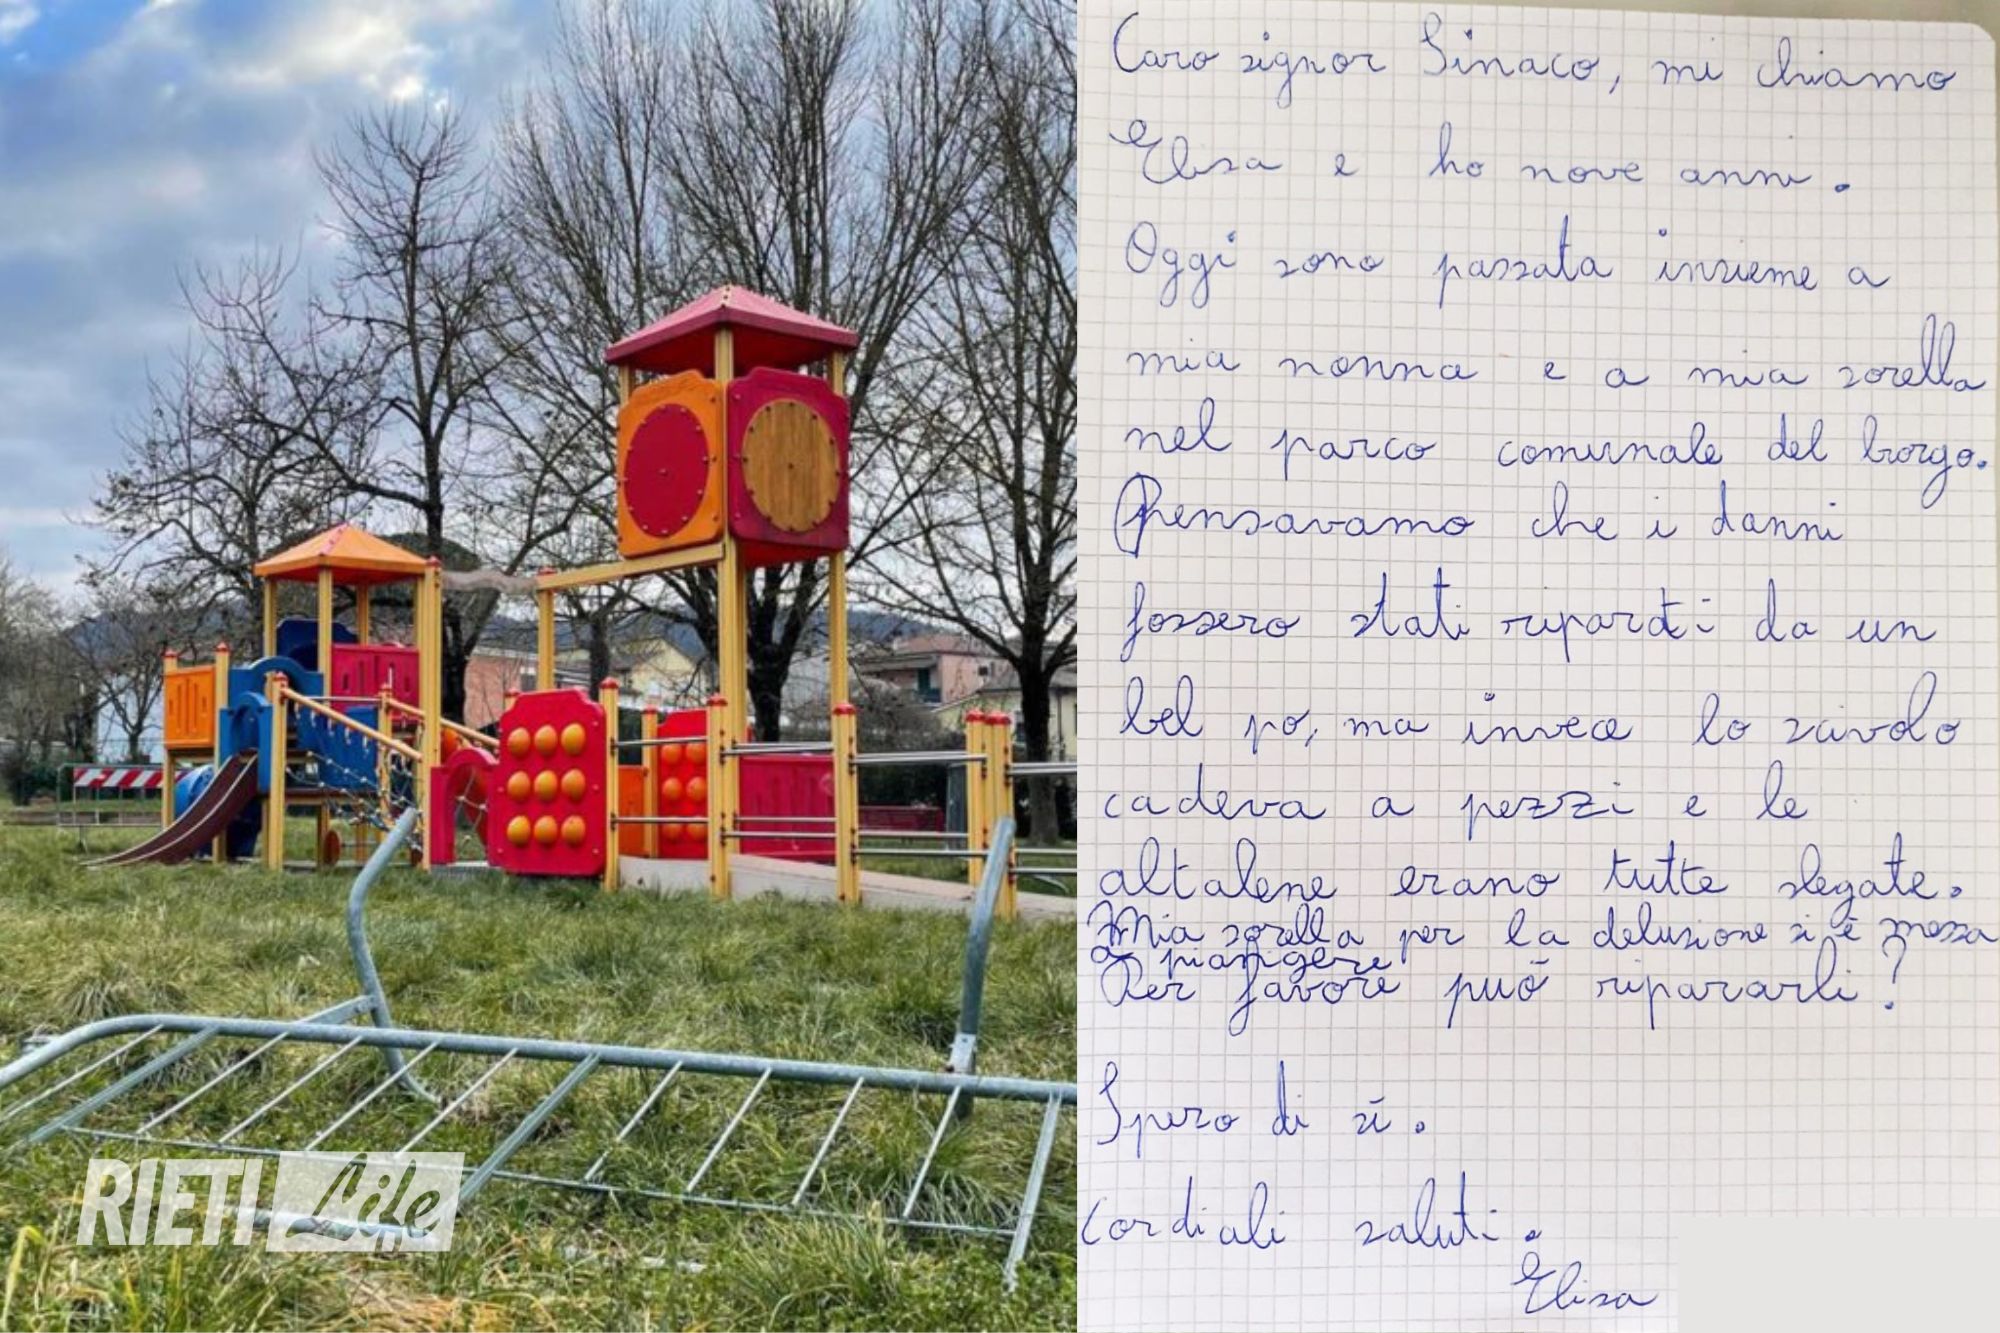 RIETI Life
Caro signor Sinaco, mi chiamo
Elisa e ho nove anni.
Oggi sono passata insieme a
mia nonna e a mia sorella
nel parco comunale del borgo.
Pensavamo che i danni
fossero stati riparati da un
bel po, ma invece lo scivolo
cadeva a pezzi e le
altalene erano tutte slegate.
Mia sorella per la delusione si è messa
a piangere
Per favore può ripararli?
Spero di sì.
Cordiali saluti.
Elisa